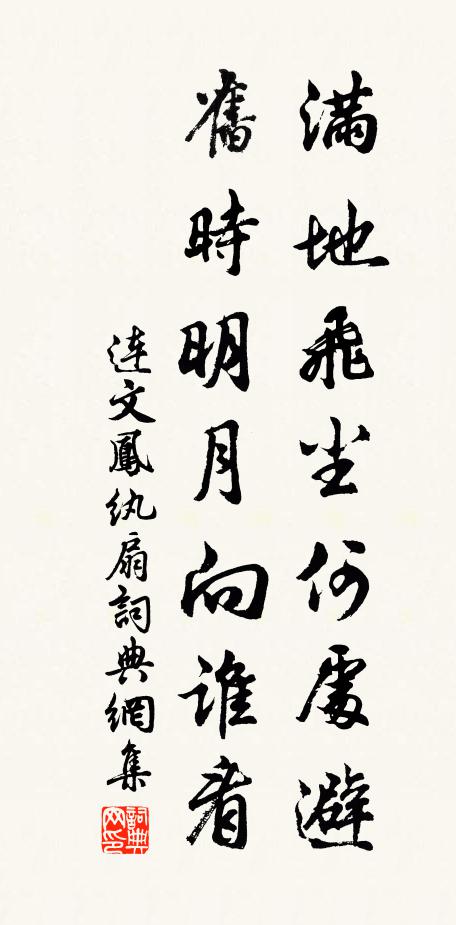 滿地飛尘何處避
舊時明月向誰看
連文鳳紈扇詞典網集
詞典網印